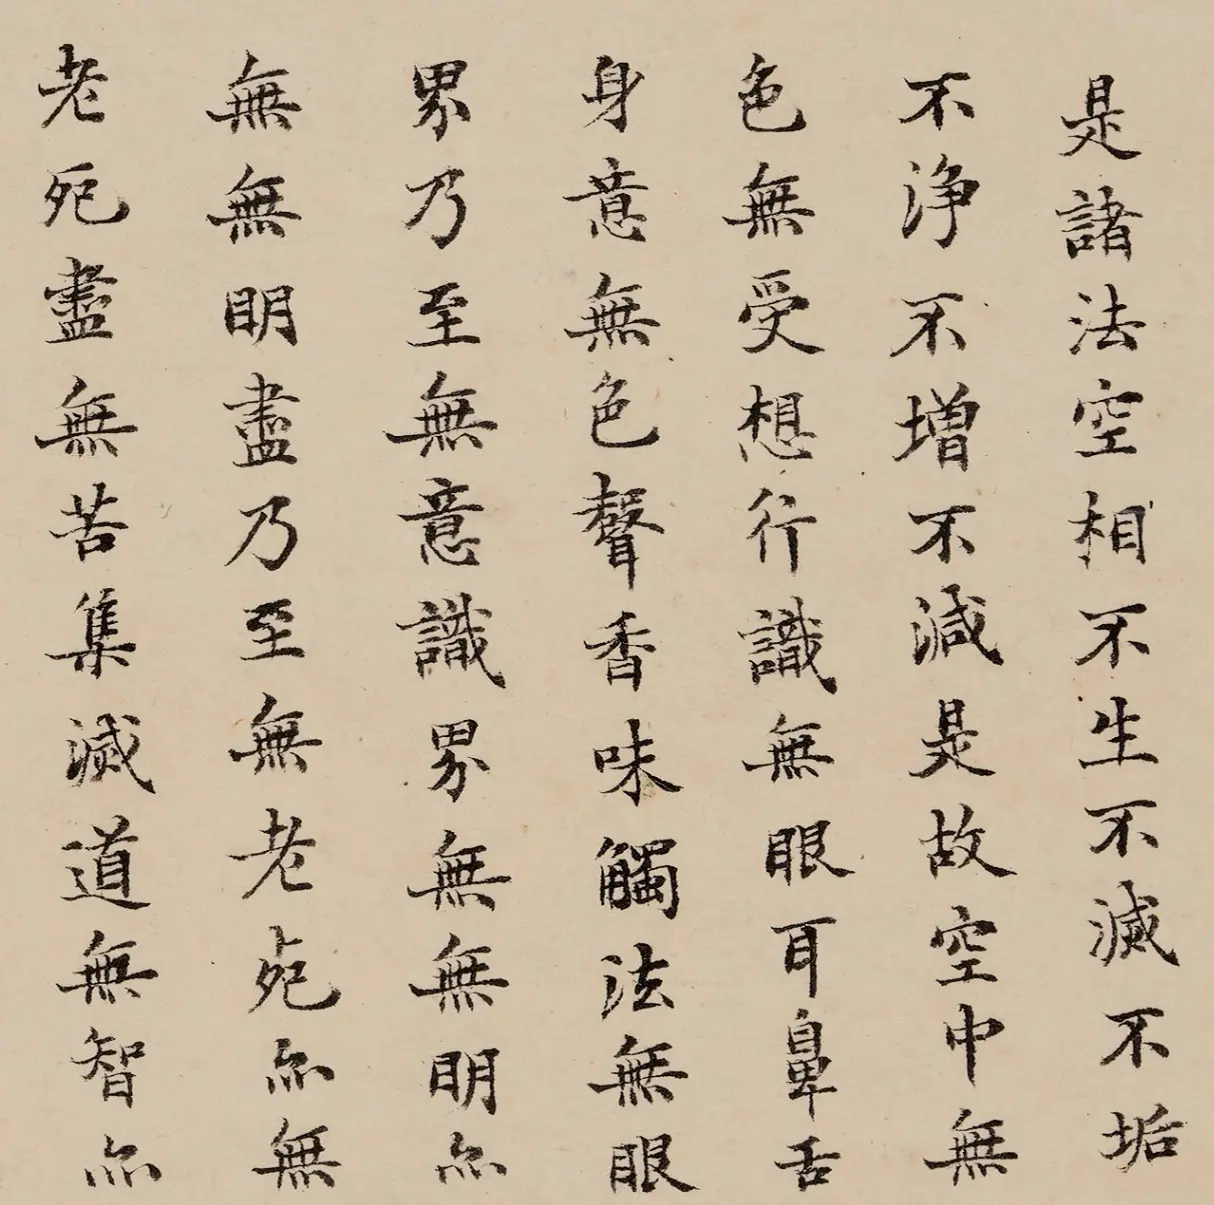 是諸法空相不生不滅不垢
不淨不增不減是故空中無
色無受想行識無眼耳鼻舌
身意無色聲香味觸法無眼
界乃至無意識界無無明亦
無無明盡乃至無老死亦無
老死盡無苦集滅道無智亦